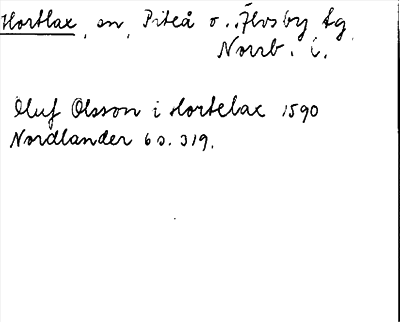 Hortlax, sn, Piteå o. Älvsby tg
Norrb. l.
Oluf Olsson i Hortelax 1590
Nordlander 6 s. 319.